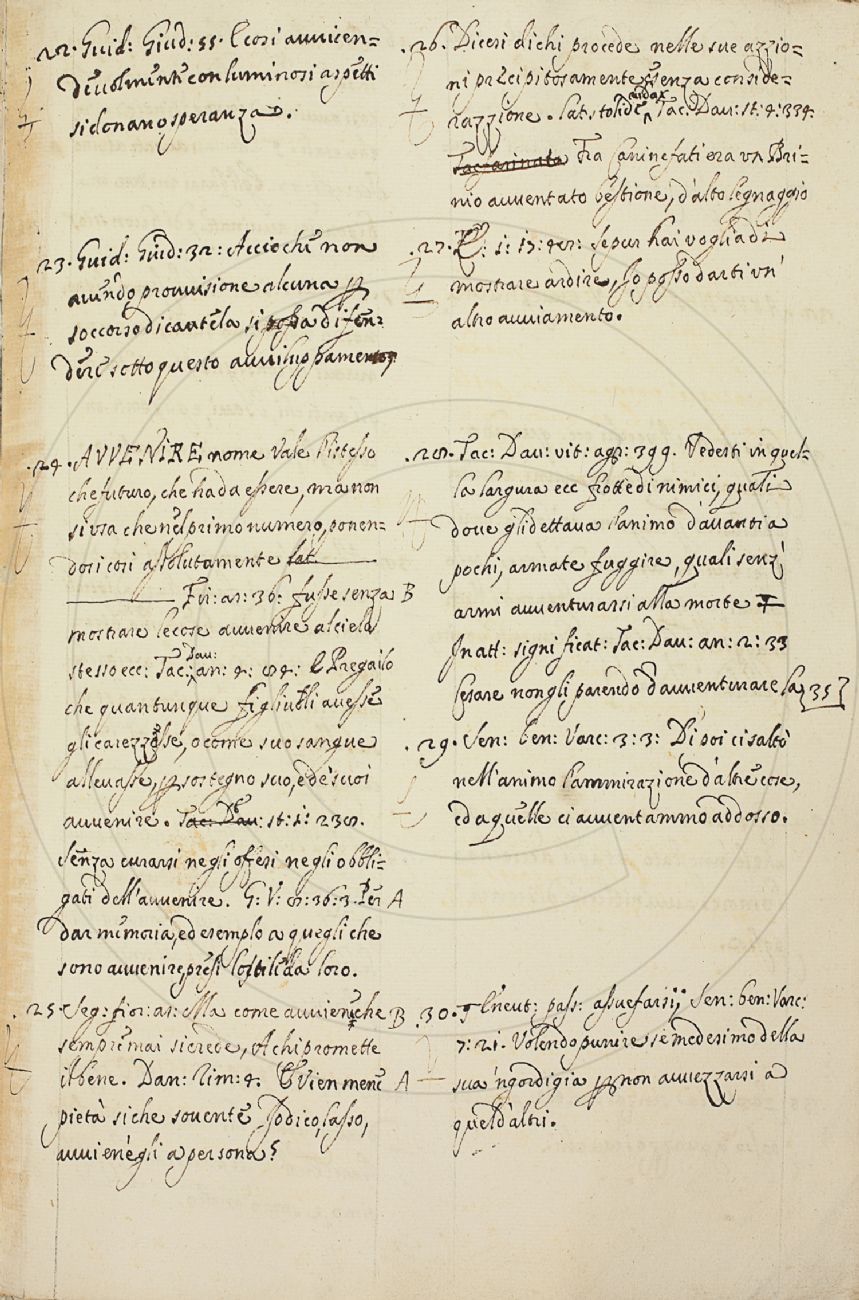 22. Guid: Giud: 55. E cosi avvicen=
devolmente con luminosi aspetti
si donano speranza.
23. Guid: Giud: 32: Acciochè non
avendo provvisione alcuna p
soccorso di cautela si possa difen=
dere sotto questo avviluppamento
24. AVVENIRE nome Vale l'istesso
che futuro, che ha da essere, ma non
si usa che nel primo numero, ponen=
dosi così assolutamente lat.
Fir: as: 36: fusse senza B
mostrare le cose avvenire al cielo
stesso ecc: Tac: Dav: an: 4: 84: E Pregailo
che quantunque figliuoli avesse
gli carezzasse, o come suo sangue
allevasse, p sostegno suo, e de' suoi
avvenire. Tac: Dav: st: 1: 238.
Senza curarsi negli offesi negli obbli=
gati dell'avvenire. G: V: 8: 36: 3. Per A
dar memoria, ed esemplo a quegli che
sono avvenire, presi lo stile da loro.
25. Seg: fior: as: Ma come avviene, che B
sempre mai si crede, A chi promette
il bene. Dan: rim: 4. E vien mene A
pietà si che sovente Io dico, lasso,
avvien'egli a persona?
26. Dicesi di chi procede nelle sue azzio=
ni precipitosamente, e senza conside=
razzione. Lat. stolide audax Tac: Dav: st: 4: 334.
Fra Caninefati era un Bri=
nio avventato bestione, d'alto legnaggio
27. 1: 17: 48: Se pur hai voglia di
mostrare ardire, Io posso darti un'
altro avviamento.
28. Tac: Dav: vit: agr: 399. Vedesti in quel=
la largura ecc frotte di nimici, quali
dove gli dettava l'animo d'avanti a
pochi, armate fuggire, quali senz'
armi avventurarsi alla morte
In att: significat: Tac: Dav: an: 2: 33
Cesare non gli parendo d'avventurare la 35
29. Sen: ben: Varc: 3: 3: Di poi ci saltò
nell'animo l'ammirazione d'altre cose,
ed a quelle ci avventammo addosso.
30. E neut: pass: assuefarsi; Sen: ben: Varc:
7: 21. Volendo punire se medesimo della
sua 'ngordigia p non avvezzarsi a
quel d'altri.